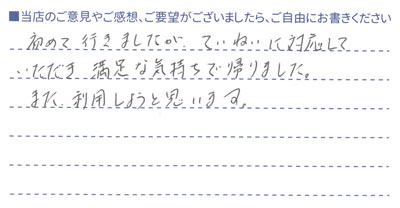 ■当店のご意見やご感想、ご要望がございましたら、ご自由にお書きください
初めて行きましたが ていねいに対応して
いただき 満足な気持ちで帰りました。
また 利用しようと思います。